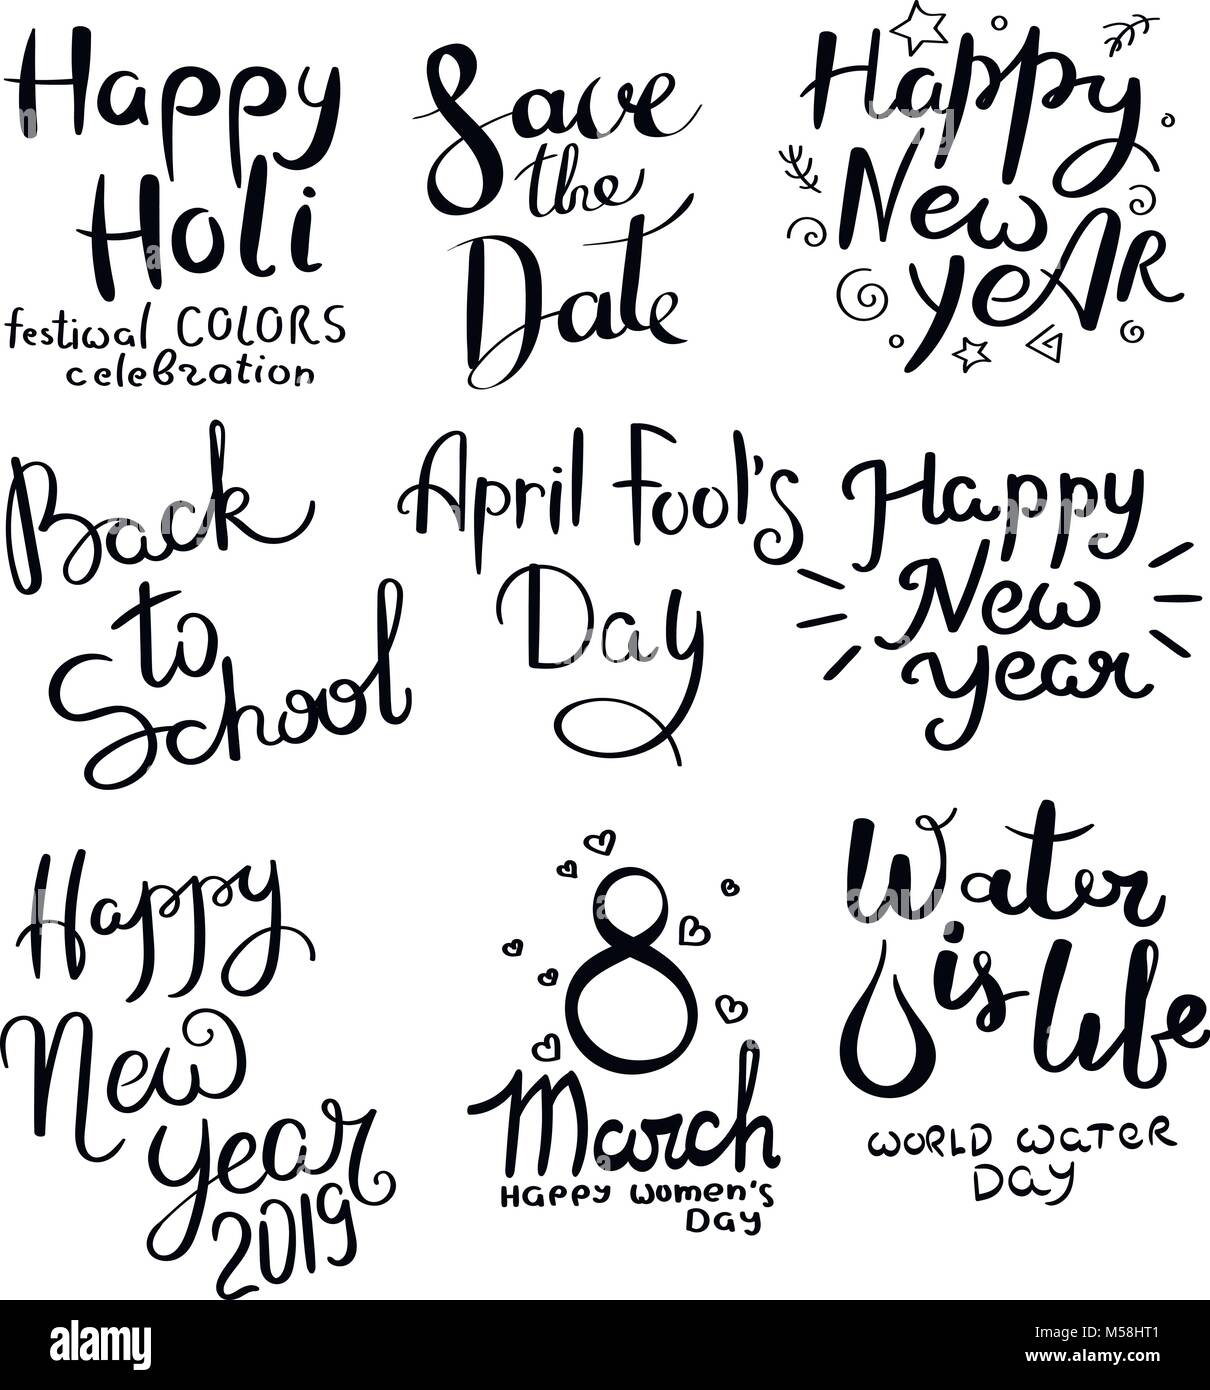 Happy
Holi
festiwal COLORS
celebration
Save
the
Date
Happy
New
yeAR
Back
to
School
April Fool's
Day
Happy
New
year
Happy
New
year
2019
8
March
Happy women's
Day
Water
is life
WORLD WATER
DAY
alamy
Image ID: M58HT1
www.alamy.com